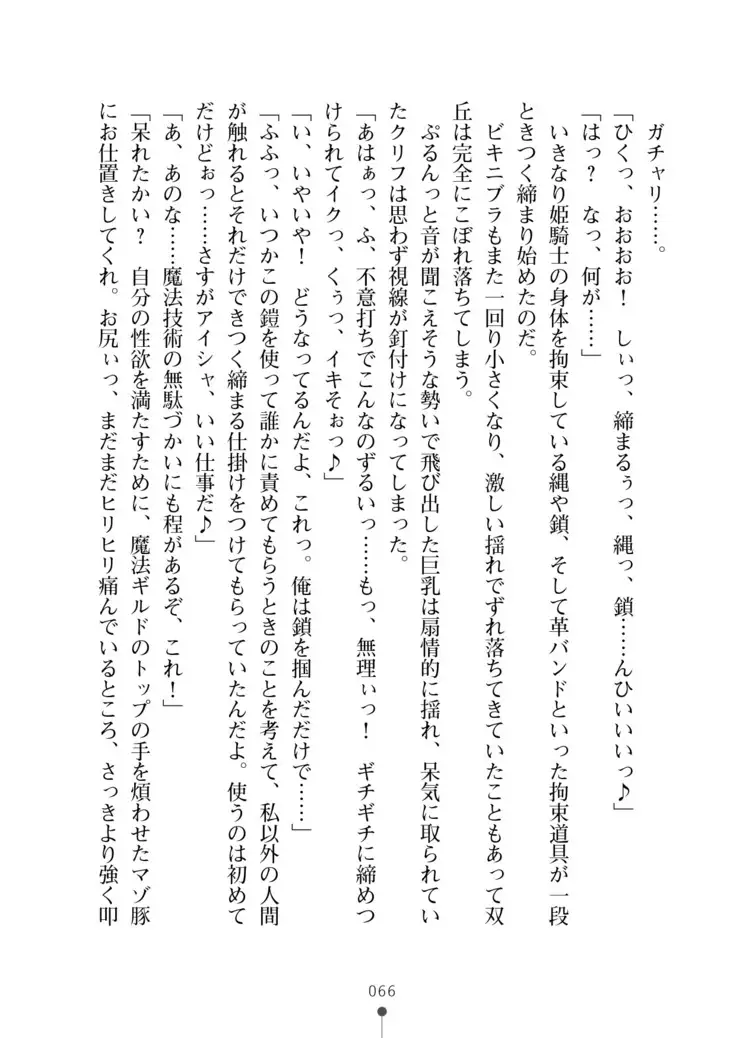 ガチャリ……。
「ひくっ、おおおお！　しぃっ、締まるぅっ、縄っ、鎖……んひいいいっ♪」
「はっ？　なっ、何が……」
いきなり姫騎士の身体を拘束している縄や鎖、そして革バンドといった拘束道具が一段
ときつく締まり始めたのだ。
ビキニブラもまた一回り小さくなり、激しい揺れでずれ落ちてきていたこともあって双
丘は完全にこぼれ落ちてしまう。
ぷるんっと音が聞こえそうな勢いで飛び出した巨乳は扇情的に揺れ、呆気に取られてい
たクリフは思わず視線が釘付けになってしまった。
「あはぁっ、ふ、不意打ちでこんなのずるいっ……もっ、無理ぃっ！　ギチギチに締めつ
けられてイクっ、くぅっ、イキそぉっ♪」
「い、いやいや！　どうなってるんだよ、これっ。俺は鎖を掴んだだけで……」
「ふふっ、いつかこの鎧を使って誰かに責めてもらうときのことを考えて、私以外の人間
が触れるとそれだけできつく締まる仕掛けをつけてもらっていたんだよ。使うのは初めて
だけどぉっ……さすがアイシャ、いい仕事だ♪」
「あ、あのな……魔法技術の無駄づかいにも程があるぞ、これ！」
「呆れたかい？　自分の性欲を満たすために、魔法ギルドのトップの手を煩わせたマゾ豚
にお仕置きしてくれ。お尻ぃっ、まだまだヒリヒリ痛んでいるところ、さっきより強く叩
066